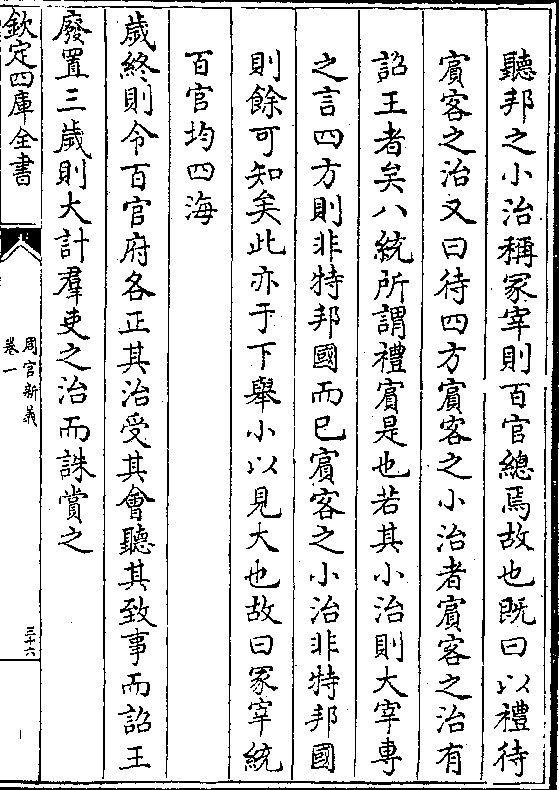 聽邦之小治稱冢宰則百官總焉故也既曰以禮待
賓客之治又曰待四方賓客之小治者賓客之治有
詔王者矣八統所謂禮賓是也若其小治則大宰專
之言四方則非特邦國而已賓客之小治非特邦國
則餘可知矣此亦于下舉小以見大也故曰冢宰統
百官均四海
歲終則令百官府各正其治受其會聽其致事而詔王
廢置三歲則大計羣吏之治而誅賞之
欽定四庫全書
周官新義
卷一
三十六